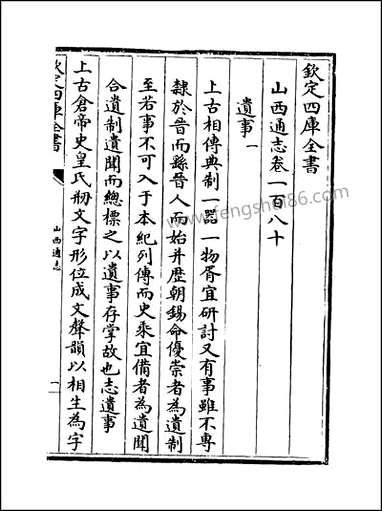 欽定四庫全書
山西通志卷一百八十
遺事一
上古相傳典制一器一物胥宜研討又有事雖不專
隸於晉而繇晉人而始并歴朝錫命優崇者為遺制
至若事不可入于本紀列傳而史乘宜備者為遺聞
合遺制遺聞而總標之以遺事存掌故也志遺事
上古倉帝史皇氏剏文字形位成文聲韻以相生為字
欽定四庫全書
山西通志
一
www.fengshui86.com